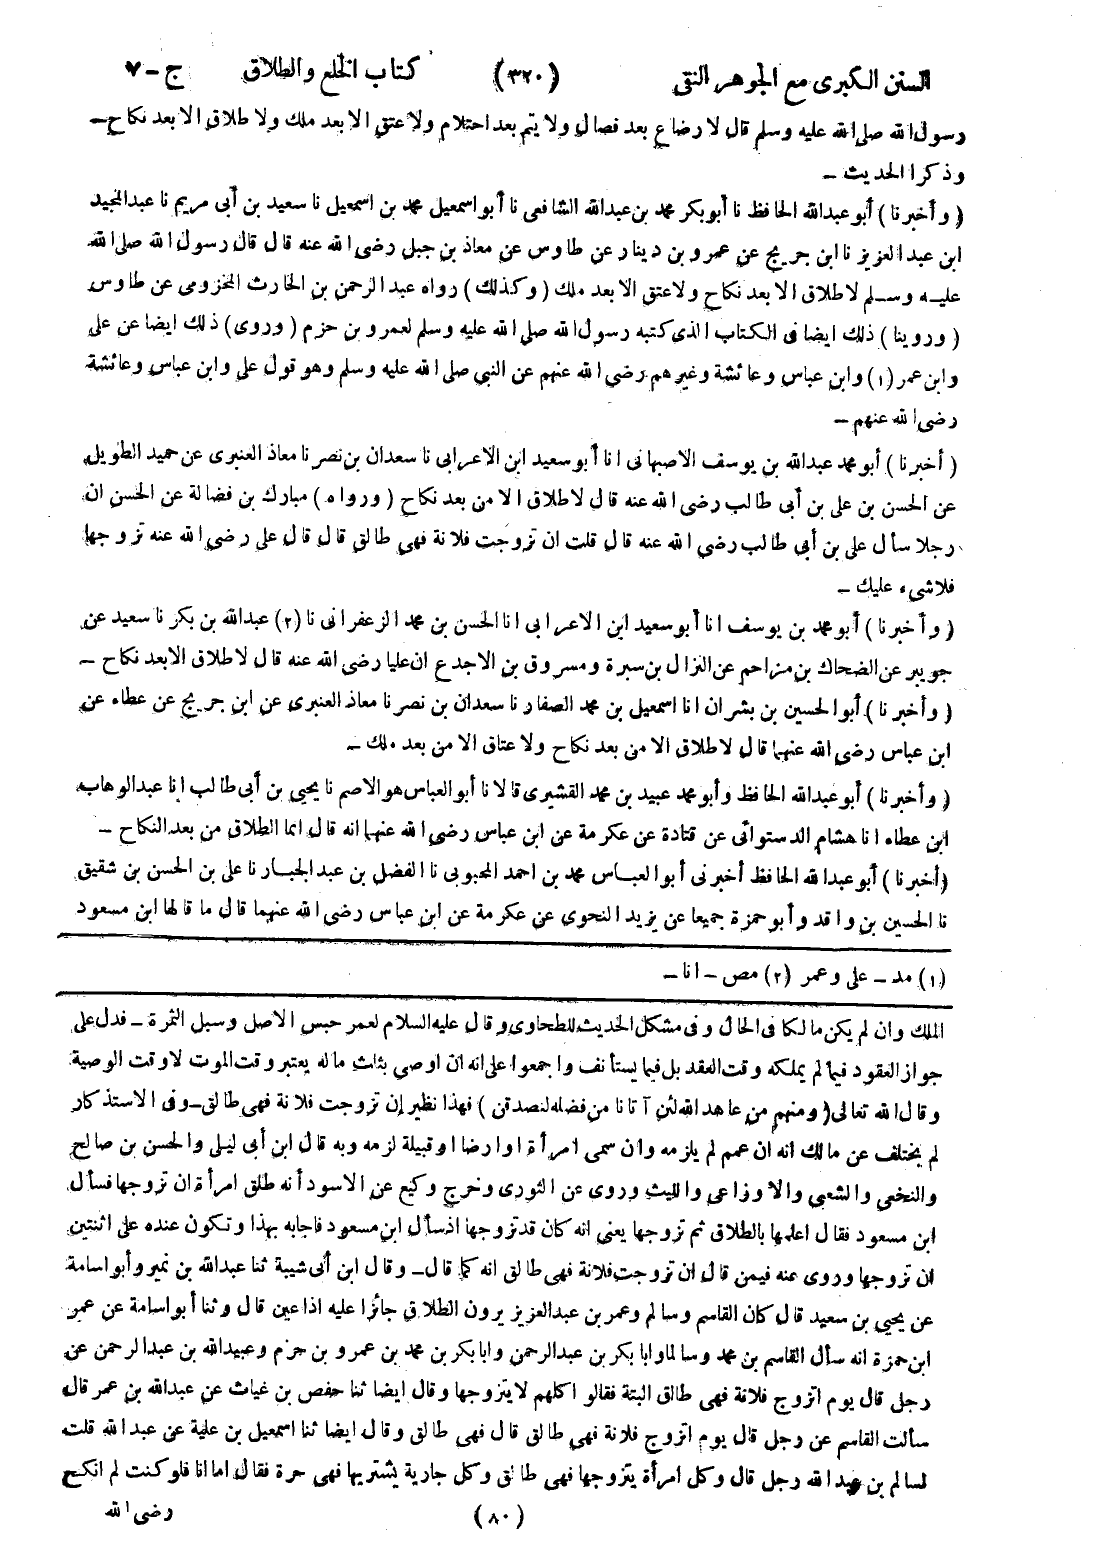 السنن الكبرى مع الجوهر النقى (٣٢٠) كتاب الخلع والطلاق ج - ٧
رسول الله صلى الله عليه وسلم قال لا رضاع بعد فصال ولا يتم بعد احتلام ولا عتق الا بعد ملك ولا طلاق الا بعد نكاح -
وذكرا الحديث -
( وأخبرنا ) أبو عبدالله الحافظ نا أبو بكر محمد بن عبدالله الشافعى نا أبو اسمعيل محمد بن اسمعيل نا سعيد بن أبى مريم نا عبد المجيد
ابن عبد العزيز نا ابن جريج عن عمرو بن دينار عن طاوس عن معاذ بن جبل رضى الله عنه قال قال رسول الله صلى الله
عليه وسلم لا طلاق الا بعد نكاح ولا عتق الا بعد ملك ( وكذلك ) رواه عبد الرحمن بن الحارث المخزومى عن طاوس
( وروينا ) ذلك ايضا فى الكتاب الذى كتبه رسول الله صلى الله عليه وسلم لعمرو بن حزم ( وروى ) ذلك ايضا عن على
وابن عمر (١) وابن عباس وعائشة وغيرهم رضى الله عنهم عن النبي صلى الله عليه وسلم وهو قول على وابن عباس وعائشة
رضى الله عنهم -
( أخبرنا ) أبو محمد عبدالله بن يوسف الاصبهانى انا أبو سعيد ابن الاعرابى نا سعدان بن نصر نا معاذ العنبرى عن حميد الطويل
عن الحسن بن على بن أبى طالب رضى الله عنه قال لا طلاق الا من بعد نكاح ( ورواه ) مبارك بن فضالة عن الحسن ان
رجلا سأل على بن أبى طالب رضى الله عنه قال قلت ان تزوجت فلانة فهى طالق قال قال على رضى الله عنه تزوجها
فلا شىء عليك -
( وأخبرنا ) أبو محمد بن يوسف انا أبو سعيد ابن الاعرابى انا الحسن بن محمد الزعفرانى نا (٢) عبدالله بن بكر نا سعيد عن
جويبر عن الضحاك بن مزاحم عن النزال بن سبرة ومسروق بن الاجدع ان عليا رضى الله عنه قال لا طلاق الا بعد نكاح -
( وأخبرنا ) أبو الحسين بن بشران انا اسمعيل بن محمد الصفار نا سعدان بن نصر نا معاذ العنبرى عن ابن جريج عن عطاء عن
ابن عباس رضى الله عنهما قال لا طلاق الا من بعد نكاح ولا عتاق الا من بعد ملك -
( وأخبرنا ) أبو عبدالله الحافظ وأبو محمد عبيد بن محمد القشيرى قالا نا أبو العباس هو الاصم نا يحيى بن أبى طالب انا عبد الوهاب
ابن عطاء انا هشام الدستوائى عن قتادة عن عكرمة عن ابن عباس رضى الله عنهما انه قال انما الطلاق من بعد النكاح -
( أخبرنا ) أبو عبد الله الحافظ أخبرنى أبو العباس محمد بن احمد المحبوبى نا الفضل بن عبد الجبار نا على بن الحسن بن شقيق
نا الحسين بن واقد وأبو حمزة جميعا عن يزيد النحوى عن عكرمة عن ابن عباس رضى الله عنهما قال ما قالها ابن مسعود
(١) مد - على وعمر (٢) مص - انا -
الملك وان لم يكن مالكا فى الحال وفى مشكل الحديث للطحاوى وقال عليه السلام لعمر حبس الاصل وسبل الثمرة - فدل على
جواز العقود فيما لم يملكه وقت العقد بل فيما يستأنف واجمعوا على انه ان اوصى بثلث ماله يعتبر وقت الموت لا وقت الوصية
وقال الله تعالى ( ومنهم من عاهد الله لئن آتانا من فضله لنصدقن ) فهذا نظير إن تزوجت فلانة فهى طالق - وفى الاستذكار
لم يختلف عن مالك انه ان عمم لم يلزمه وان سمى امرأة او ارضا او قبيلة لزمه وبه قال ابن أبى ليلى والحسن بن صالح
والنخعى والشعبى والاوزاعى والليث وروى عن الثورى وخرج وكيع عن الاسود أنه طلق امرأة ان تزوجها فسأل
ابن مسعود فقال اعلمها بالطلاق ثم تزوجها يعنى انه كان قد تزوجها اذ سأل ابن مسعود فاجابه بهذا وتكون عنده على اثنتين
ان تزوجها وروى عنه فيمن قال ان تزوجت فلانة فهى طالق انه كما قال - وقال ابن أبى شيبة ثنا عبدالله بن نمير وأبو اسامة
عن يحيى بن سعيد قال كان القاسم وسالم وعمر بن عبد العزيز يرون الطلاق جائزا عليه اذا عين قال وثنا أبو اسامة عن عمر
ابن حمزة انه سأل القاسم بن محمد وسالما وابا بكر بن عبد الرحمن وابا بكر بن محمد بن عمرو بن حزم وعبيدالله بن عبد الرحمن عن
رجل قال يوم اتزوج فلانة فهى طالق البتة فقالوا كلهم لا يتزوجها وقال ايضا ثنا حفص بن غياث عن عبدالله بن عمر قال
سألت القاسم عن رجل قال يوم اتزوج فلانة فهى طالق قال فهى طالق وقال ايضا ثنا اسمعيل بن علية عن عبد الله قلت
لسالم بن عبد الله رجل قال وكل امرأة يتزوجها فهى طالق وكل جارية يشتريها فهى حرة فقال اما انا فلو كنت لم انكح
(٨٠) رضى الله